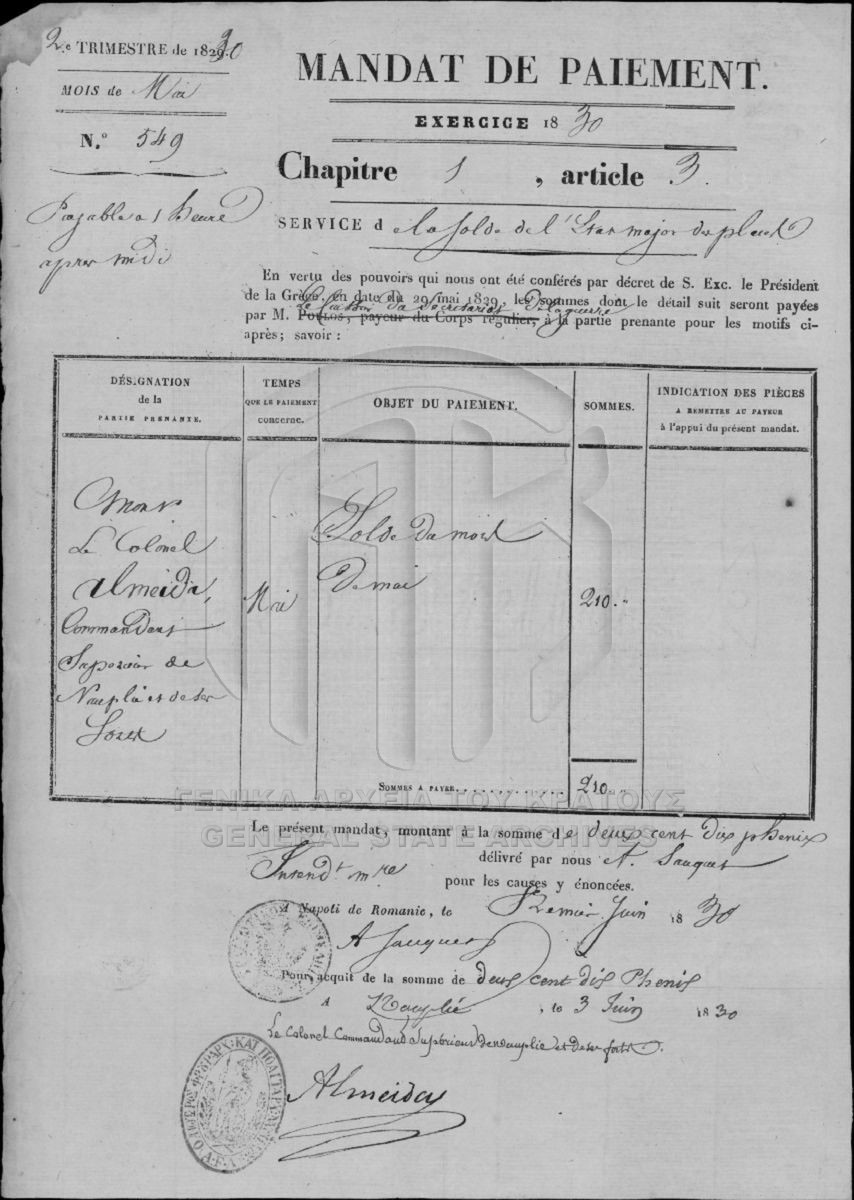 2.e TRIMESTRE de 1830
MOIS de Mai
N.º 549
Payable a 1 heure
apres midi
MANDAT DE PAIEMENT.
EXERCICE 1830
Chapitre 1, article 3.
SERVICE de la solde de l'Etat major des places
En vertu des pouvoirs qui nous ont été conférés par décret de S. Exc. le Président
de la Grèce, en date du 29 mai 1829, les sommes dont le détail suit seront payées
le Caissier du Secretariat de la guerre
par M. POULOS, payeur du Corps régulier, à la partie prenante pour les motifs ci-
après; savoir :
DÉSIGNATION
de la
PARTIE PRENANTE.
TEMPS
QUE LE PAIEMENT
concerne.
OBJET DU PAIEMENT.
SOMMES.
INDICATION DES PIÈCES
A REMETTRE AU PAYEUR
à l'appui du présent mandat.
Monsr
Le Colonel
Almeida,
Commandant
Superieur de
Nauplie et de ses
Forts
Mai
Solde du mois
de mai
210.„
SOMMES A PAYER.............. 210.„
ΓΕΝΙΚΑ ΑΡΧΕΙΑ ΤΟΥ ΚΡΑΤΟΥΣ
GENERAL STATE ARCHIVES
Le présent mandat, montant à la somme de deux cent dix phenix
délivré par nous A. Sauquet
Intendt mre
pour les causes y énoncées.
A Napoli de Romanie, le Premier Juin 1830
A Sauquet
Pour acquit de la somme de deus cent dis Phenis
A Nauplié, le 3 Juin 1830
Le Colonel Commandand Supérieur de nauplie et de ses forts.
Almeida